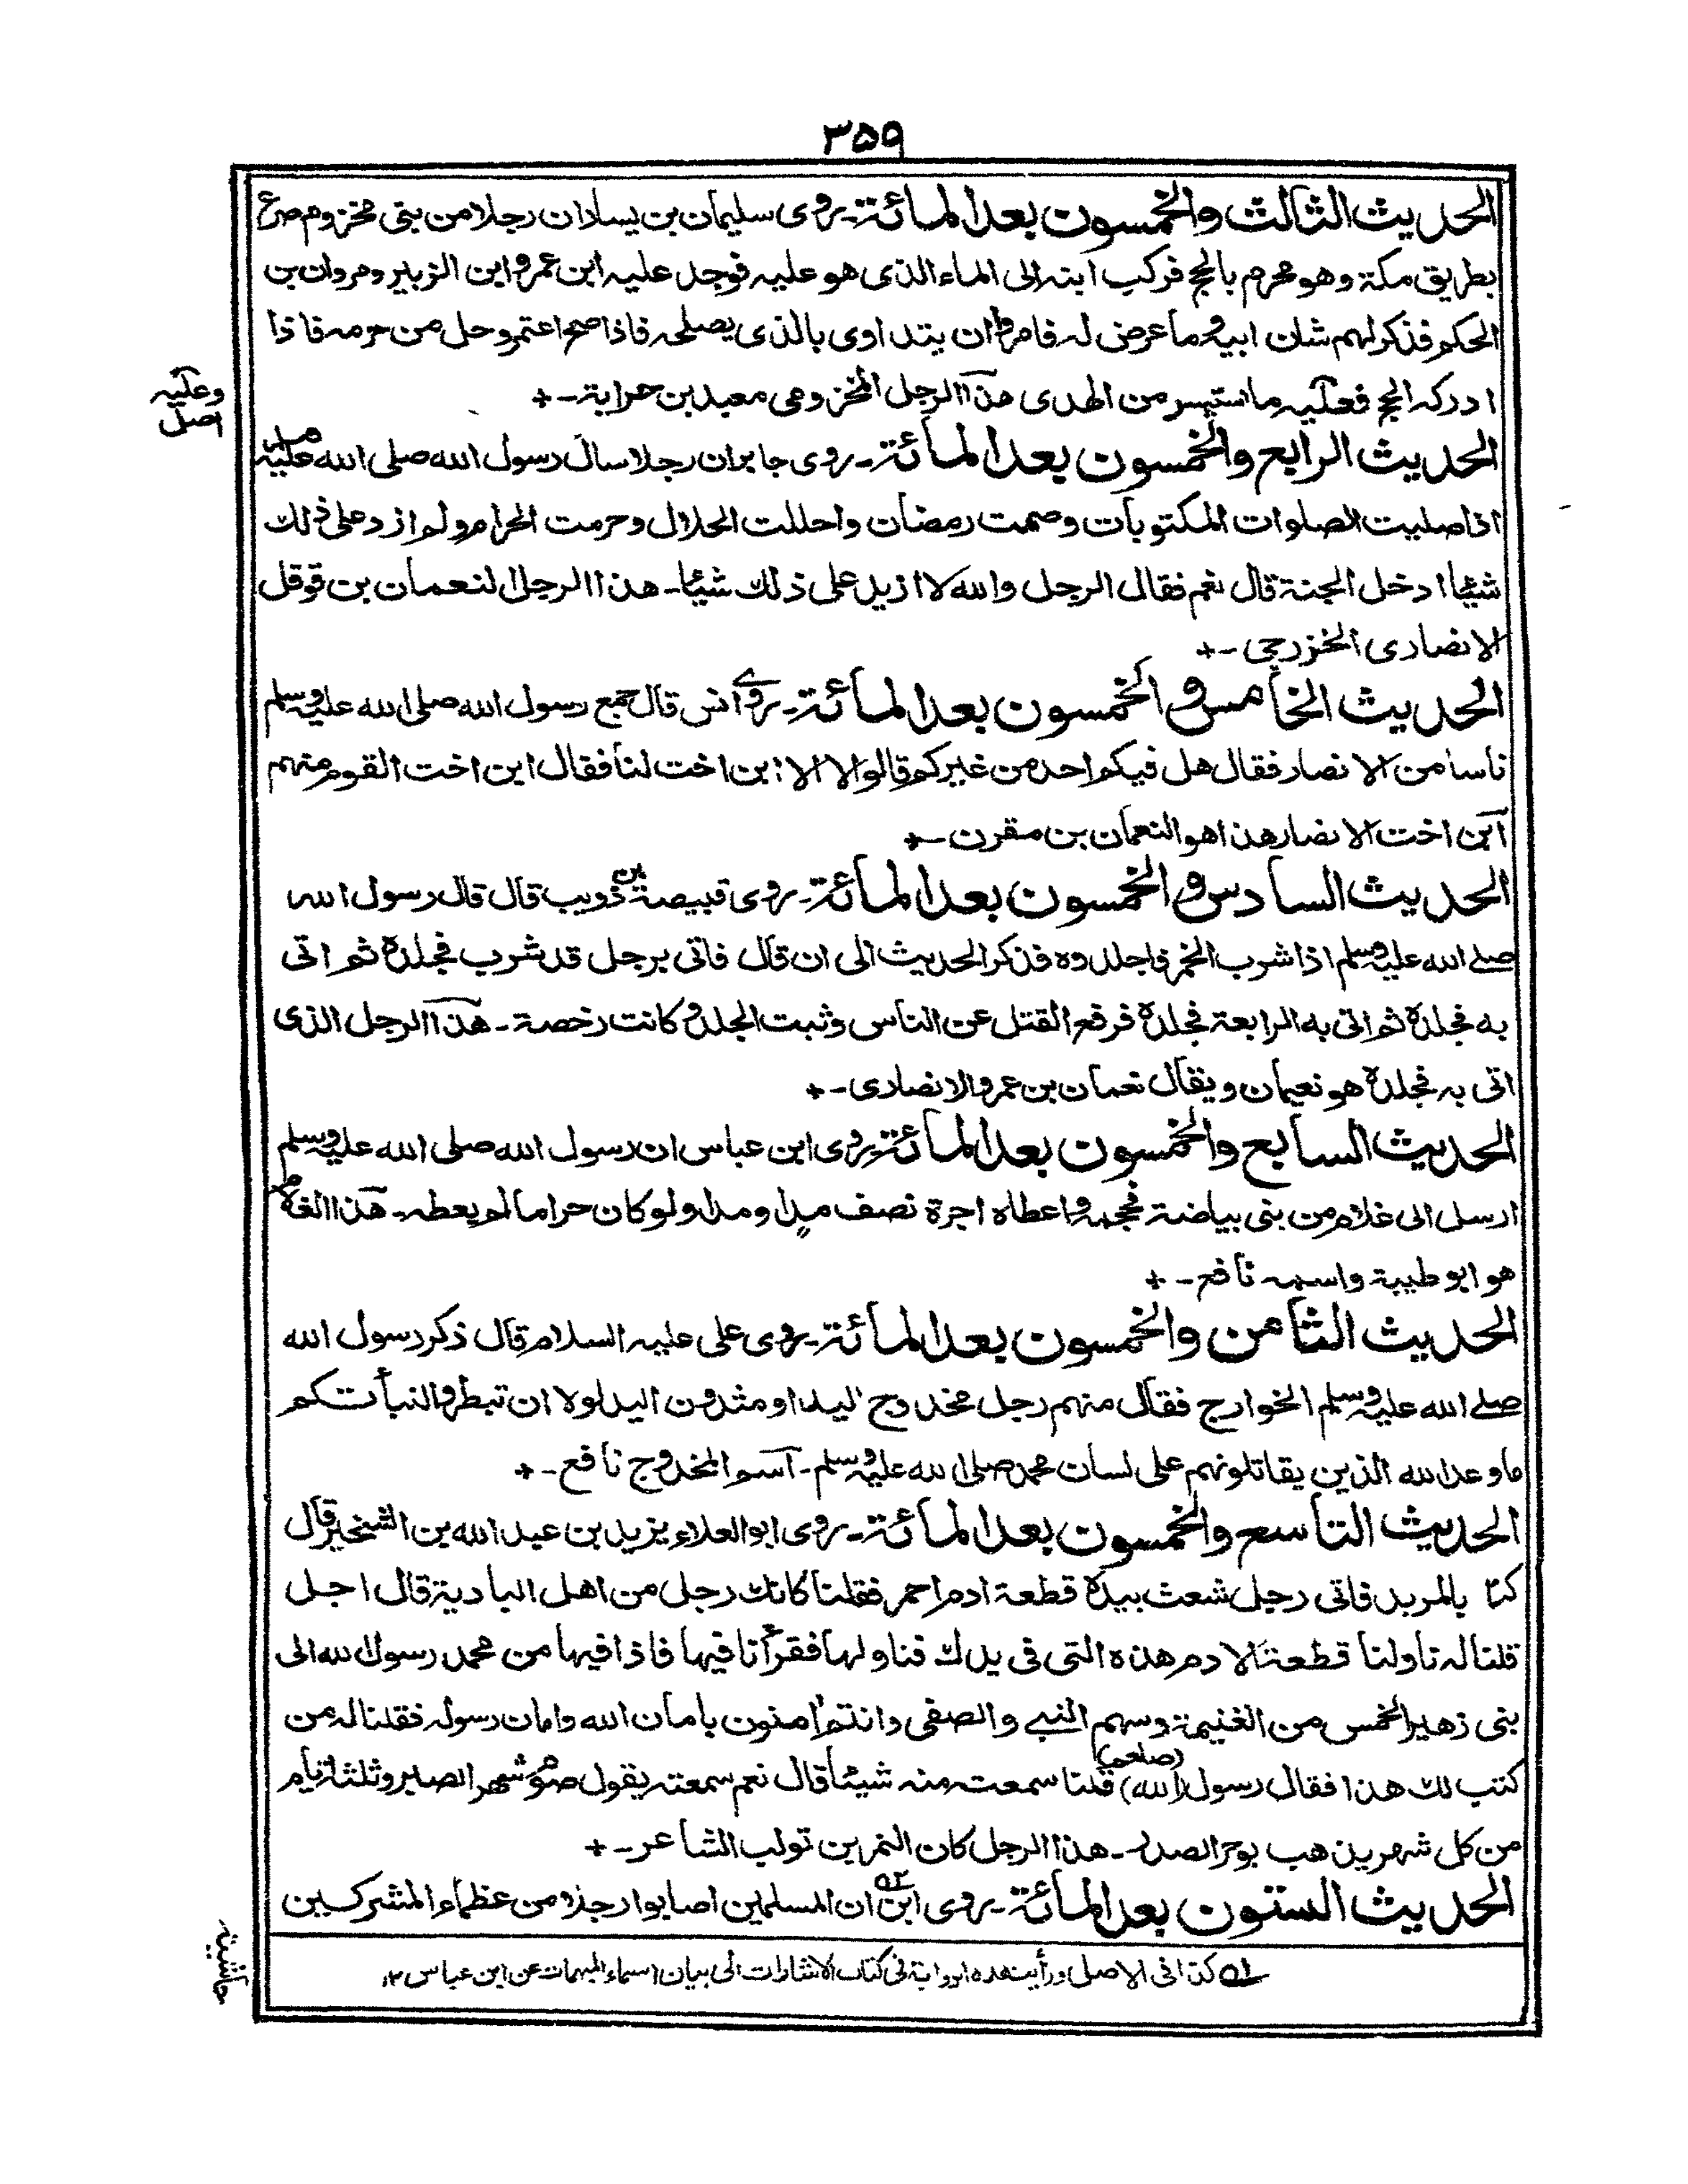 ۳۵۹
الحديث الثالث والخمسون بعد المائة۔ روى سليمان بن يسار ان رجلا من بنى مخزوم صرع
بطريق مكة وهو محرم بالحج فركب ابنه الى الماء الذى هو عليه فوجد عليه ابن عمر و ابن الزبير ومروان بن
الحكم فذكر لهم شان ابيه وما عرض له فامروا ان يتداوى بالذى يصلحه فاذا صح اعتمر وحل من حرمه فاذا
ادركه الحج فعليه ما استيسر من الهدى هذا الرجل المخزومى معبد بن حرابة۔ +
وعليه
اصل
الحديث الرابع والخمسون بعد المائة۔ روى جابر ان رجلا سال رسول الله صلى الله عليه
اذا صليت الصلوات المكتوبات وصمت رمضان واحللت الحلال وحرمت الحرام ولم ازد على ذلك
شيئا ادخل الجنة قال نعم فقال الرجل والله لا ازيد على ذلك شيئا۔ هذا الرجل النعمان بن قوقل
الانصارى الخزرجى۔ +
الحديث الخامس و الخمسون بعد المائة۔ روى انس قال جمع رسول الله صلى الله عليه وسلم
ناسا من الانصار فقال هل فيكم احد من غيركم قالوا لا الا ابن اخت لنا فقال ابن اخت القوم منهم
ابن اخت الانصار هذا هو النعمان بن مقرن۔ +
الحديث السادس و الخمسون بعد المائة۔ روى قبيصة بن ذويب قال قال رسول الله
صلى الله عليه وسلم اذا شرب الخمر فاجلدوه فذكر الحديث الى ان قال فاتى برجل قد شرب فجلده ثم اتى
به فجلده ثم اتى به الرابعة فجلده فرفع القتل عن الناس وثبت الجلد وكانت رخصة۔ هذا الرجل الذى
اتى به فجلده هو نعيمان ويقال نعمان بن عمرو الانصارى۔ +
الحديث السابع والخمسون بعد المائة۔ روى ابن عباس ان رسول الله صلى الله عليه وسلم
ارسل الى غلام من بنى بياضة فحجمه واعطاه اجرة نصف مد او مدا ولو كان حراما لم يعطه۔ هذا الغلام
هو ابو طيبة واسمه نافع۔ +
الحديث الثامن والخمسون بعد المائة۔ روى على عليه السلام قال ذكر رسول الله
صلى الله عليه وسلم الخوارج فقال منهم رجل مخدوج اليد او مثدون اليد لولا ان تبطروا لنبأتكم
ما وعد الله الذين يقاتلونهم على لسان محمد صلى الله عليه وسلم۔ اسم المخدوج نافع۔ +
الحديث التاسع والخمسون بعد المائة۔ روى ابو العلاء يزيد بن عبد الله بن الشخير قال
كنا بالمربد فاتى رجل شعث بيده قطعة ادم احمر فقلنا كانك رجل من اهل البادية قال اجل
قلنا له ناولنا قطعة الادم هذه التى فى يدك فناولها فقرأنا فيها فاذا فيها من محمد رسول الله الى
بنى زهير الخمس من الغنيمة وسهم النبى والصفى وانتم امنون بامان الله وامان رسوله فقلنا له من
كتب لك هذا فقال رسول (الله) (صلعم) قلنا سمعت منه شيئا قال نعم سمعته يقول صوم شهر الصبر وثلثة ايام
من كل شهر يذهب بوحر الصدر۔ هذا الرجل كان النمر بن تولب الشاعر۔ +
الحديث الستون بعد المائة۔ روى ابن ۵۲ ان المسلمين اصابوا رجلا من عظماء المشركين
۵۱ كذا فى الاصل ورأيت هذه الرواية فى كتاب الاشارات الى بيان اسماء المبهمات عن ابن عباس ۱۲
حاشية